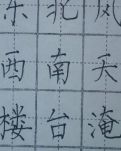 东北风
西南天
楼台淹